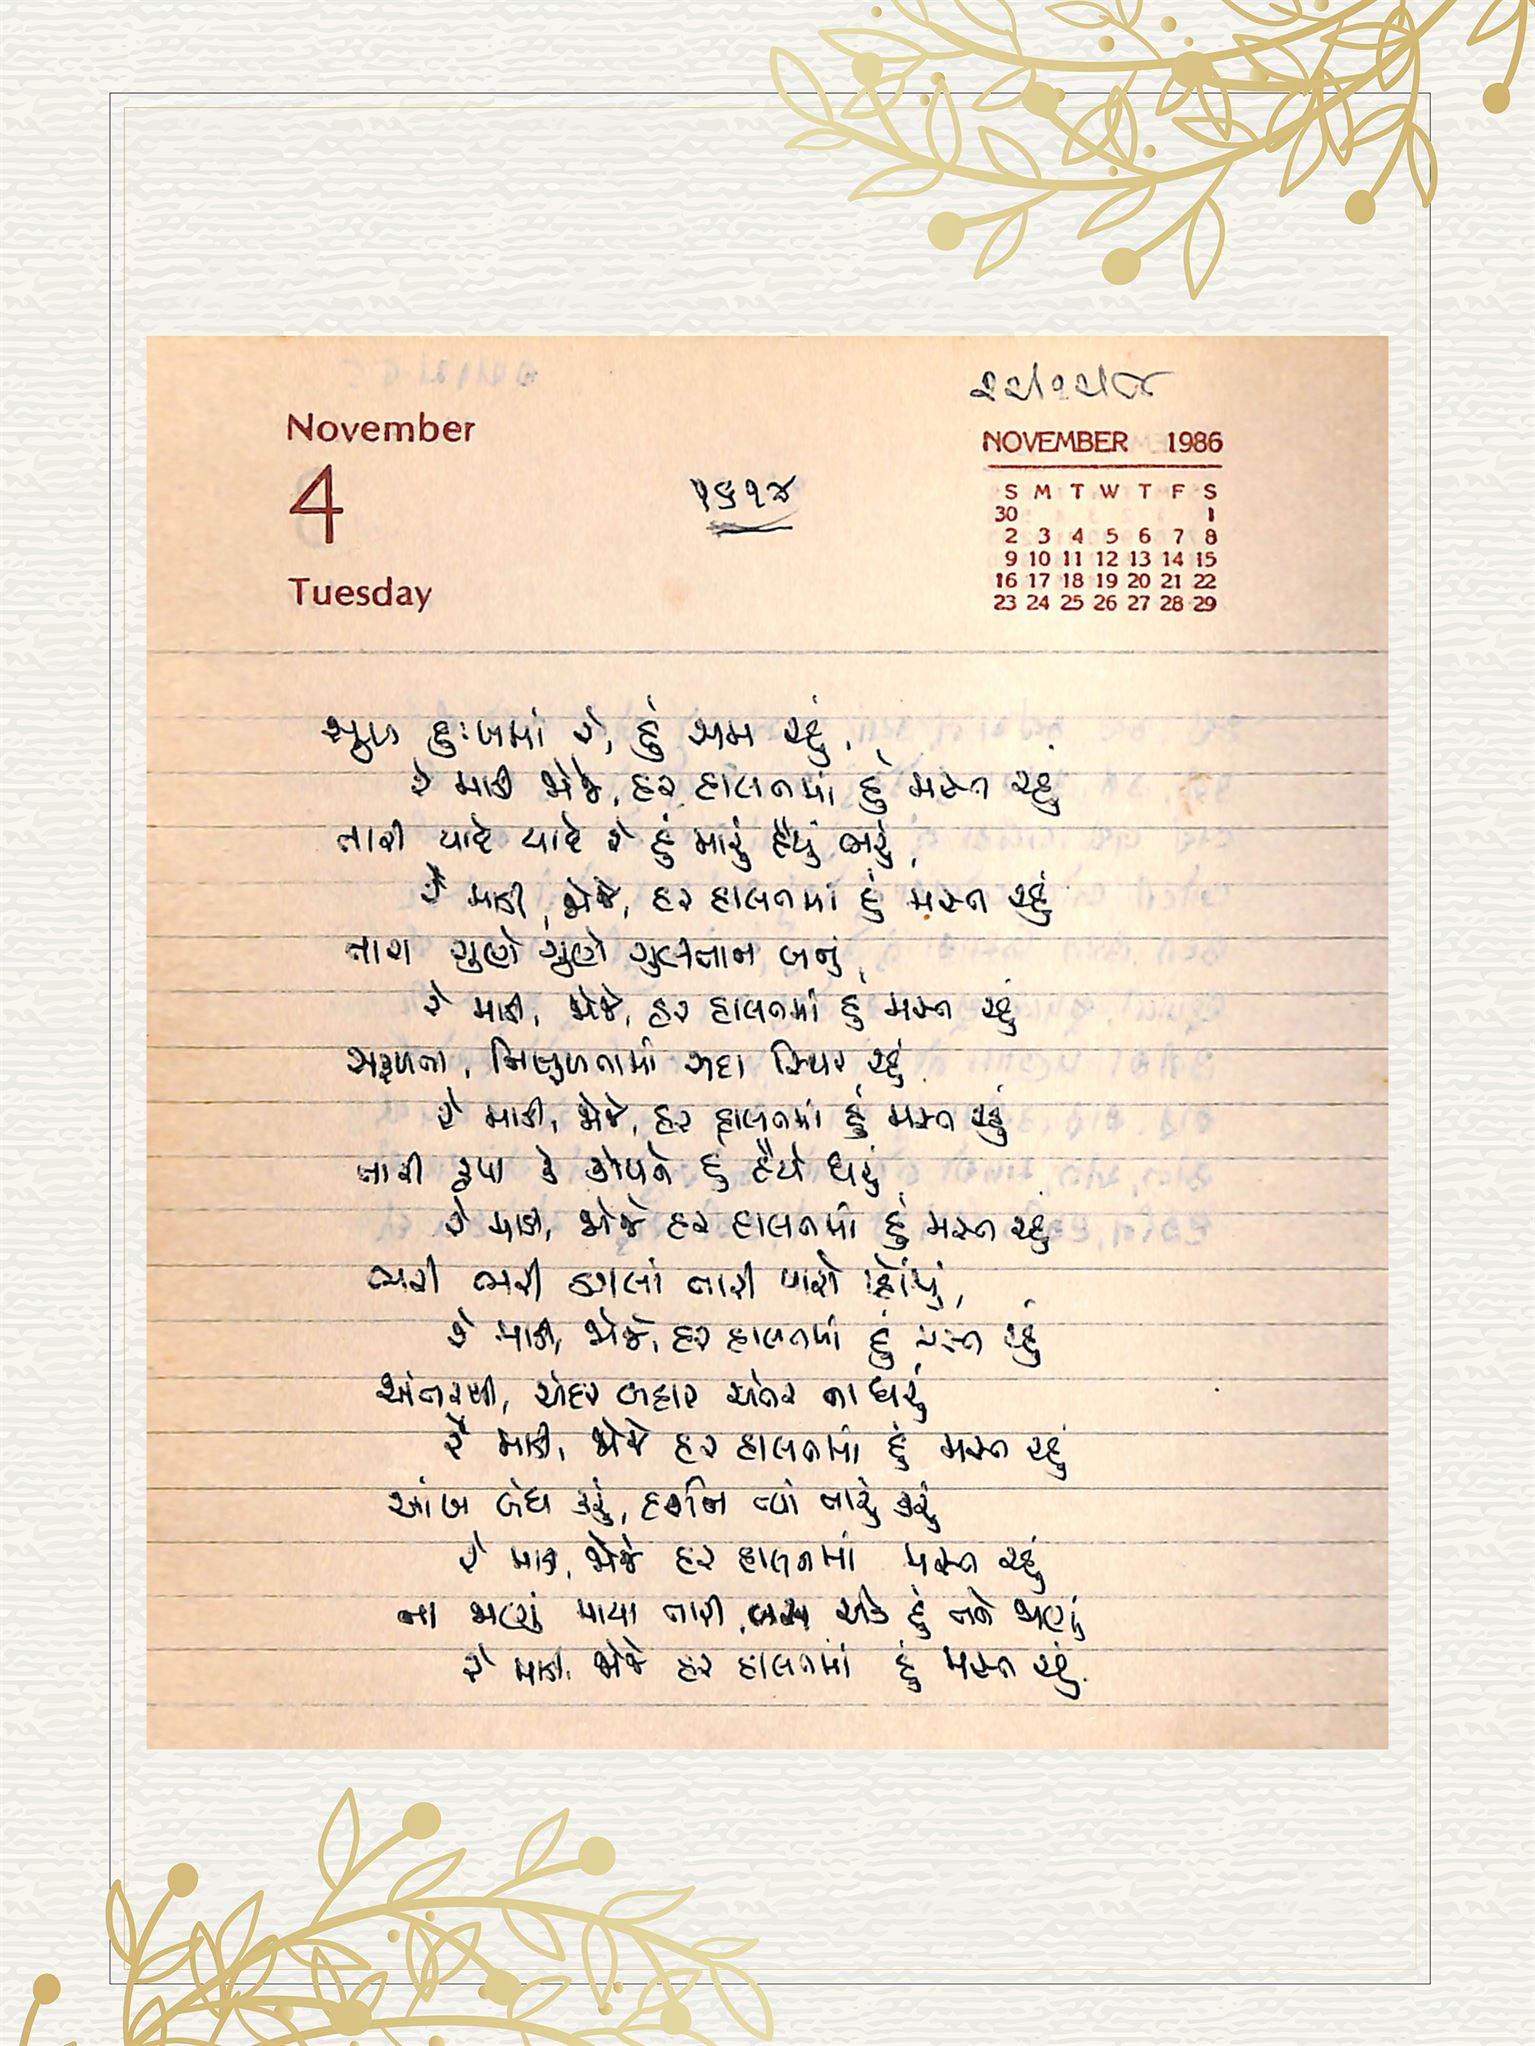 November
4
Tuesday
NOVEMBER 1986
S M T W T F S
30 1
2 3 4 5 6 7 8
9 10 11 12 13 14 15
16 17 18 19 20 21 22
23 24 25 26 27 28 29
૧૬૧૪
સુખ દુઃખમાં રે, હું સમ રહું,
રે માડી જોજે, હર હાલતમાં હું મસ્ત રહું
તારી યાદે યાદે રે હું મારું હૈયું ભરું,
રે માડી, જોજે, હર હાલતમાં હું મસ્ત રહું
તારા ગુણે ગુણે ગુલતાન બનું,
રે માડી, જોજે, હર હાલતમાં હું મસ્ત રહું
સફળતા, નિષ્ફળતામાં સદા સ્થિર રહું
રે માડી, જોજે, હર હાલતમાં હું મસ્ત રહું
તારી કૃપા કે કોપને હું હૈયે ધરું
રે માડી, જોજે હર હાલતમાં હું મસ્ત રહું
ભરી ભરી ડગલાં તારી પાસે પહોંચું,
રે માડી, જોજે, હર હાલતમાં હું મસ્ત રહું
અંદર બહાર અંતર ના ધરું
રે માડી, જોજે હર હાલતમાં હું મસ્ત રહું
આંખ બંધ કરું, દર્શન ત્યાં તારું કરું
રે માડી, જોજે હર હાલતમાં મસ્ત રહું
ના જાણું માયા તારી, બસ એક હું તને જાણું
રે માડી, જોજે હર હાલતમાં હું મસ્ત રહું.